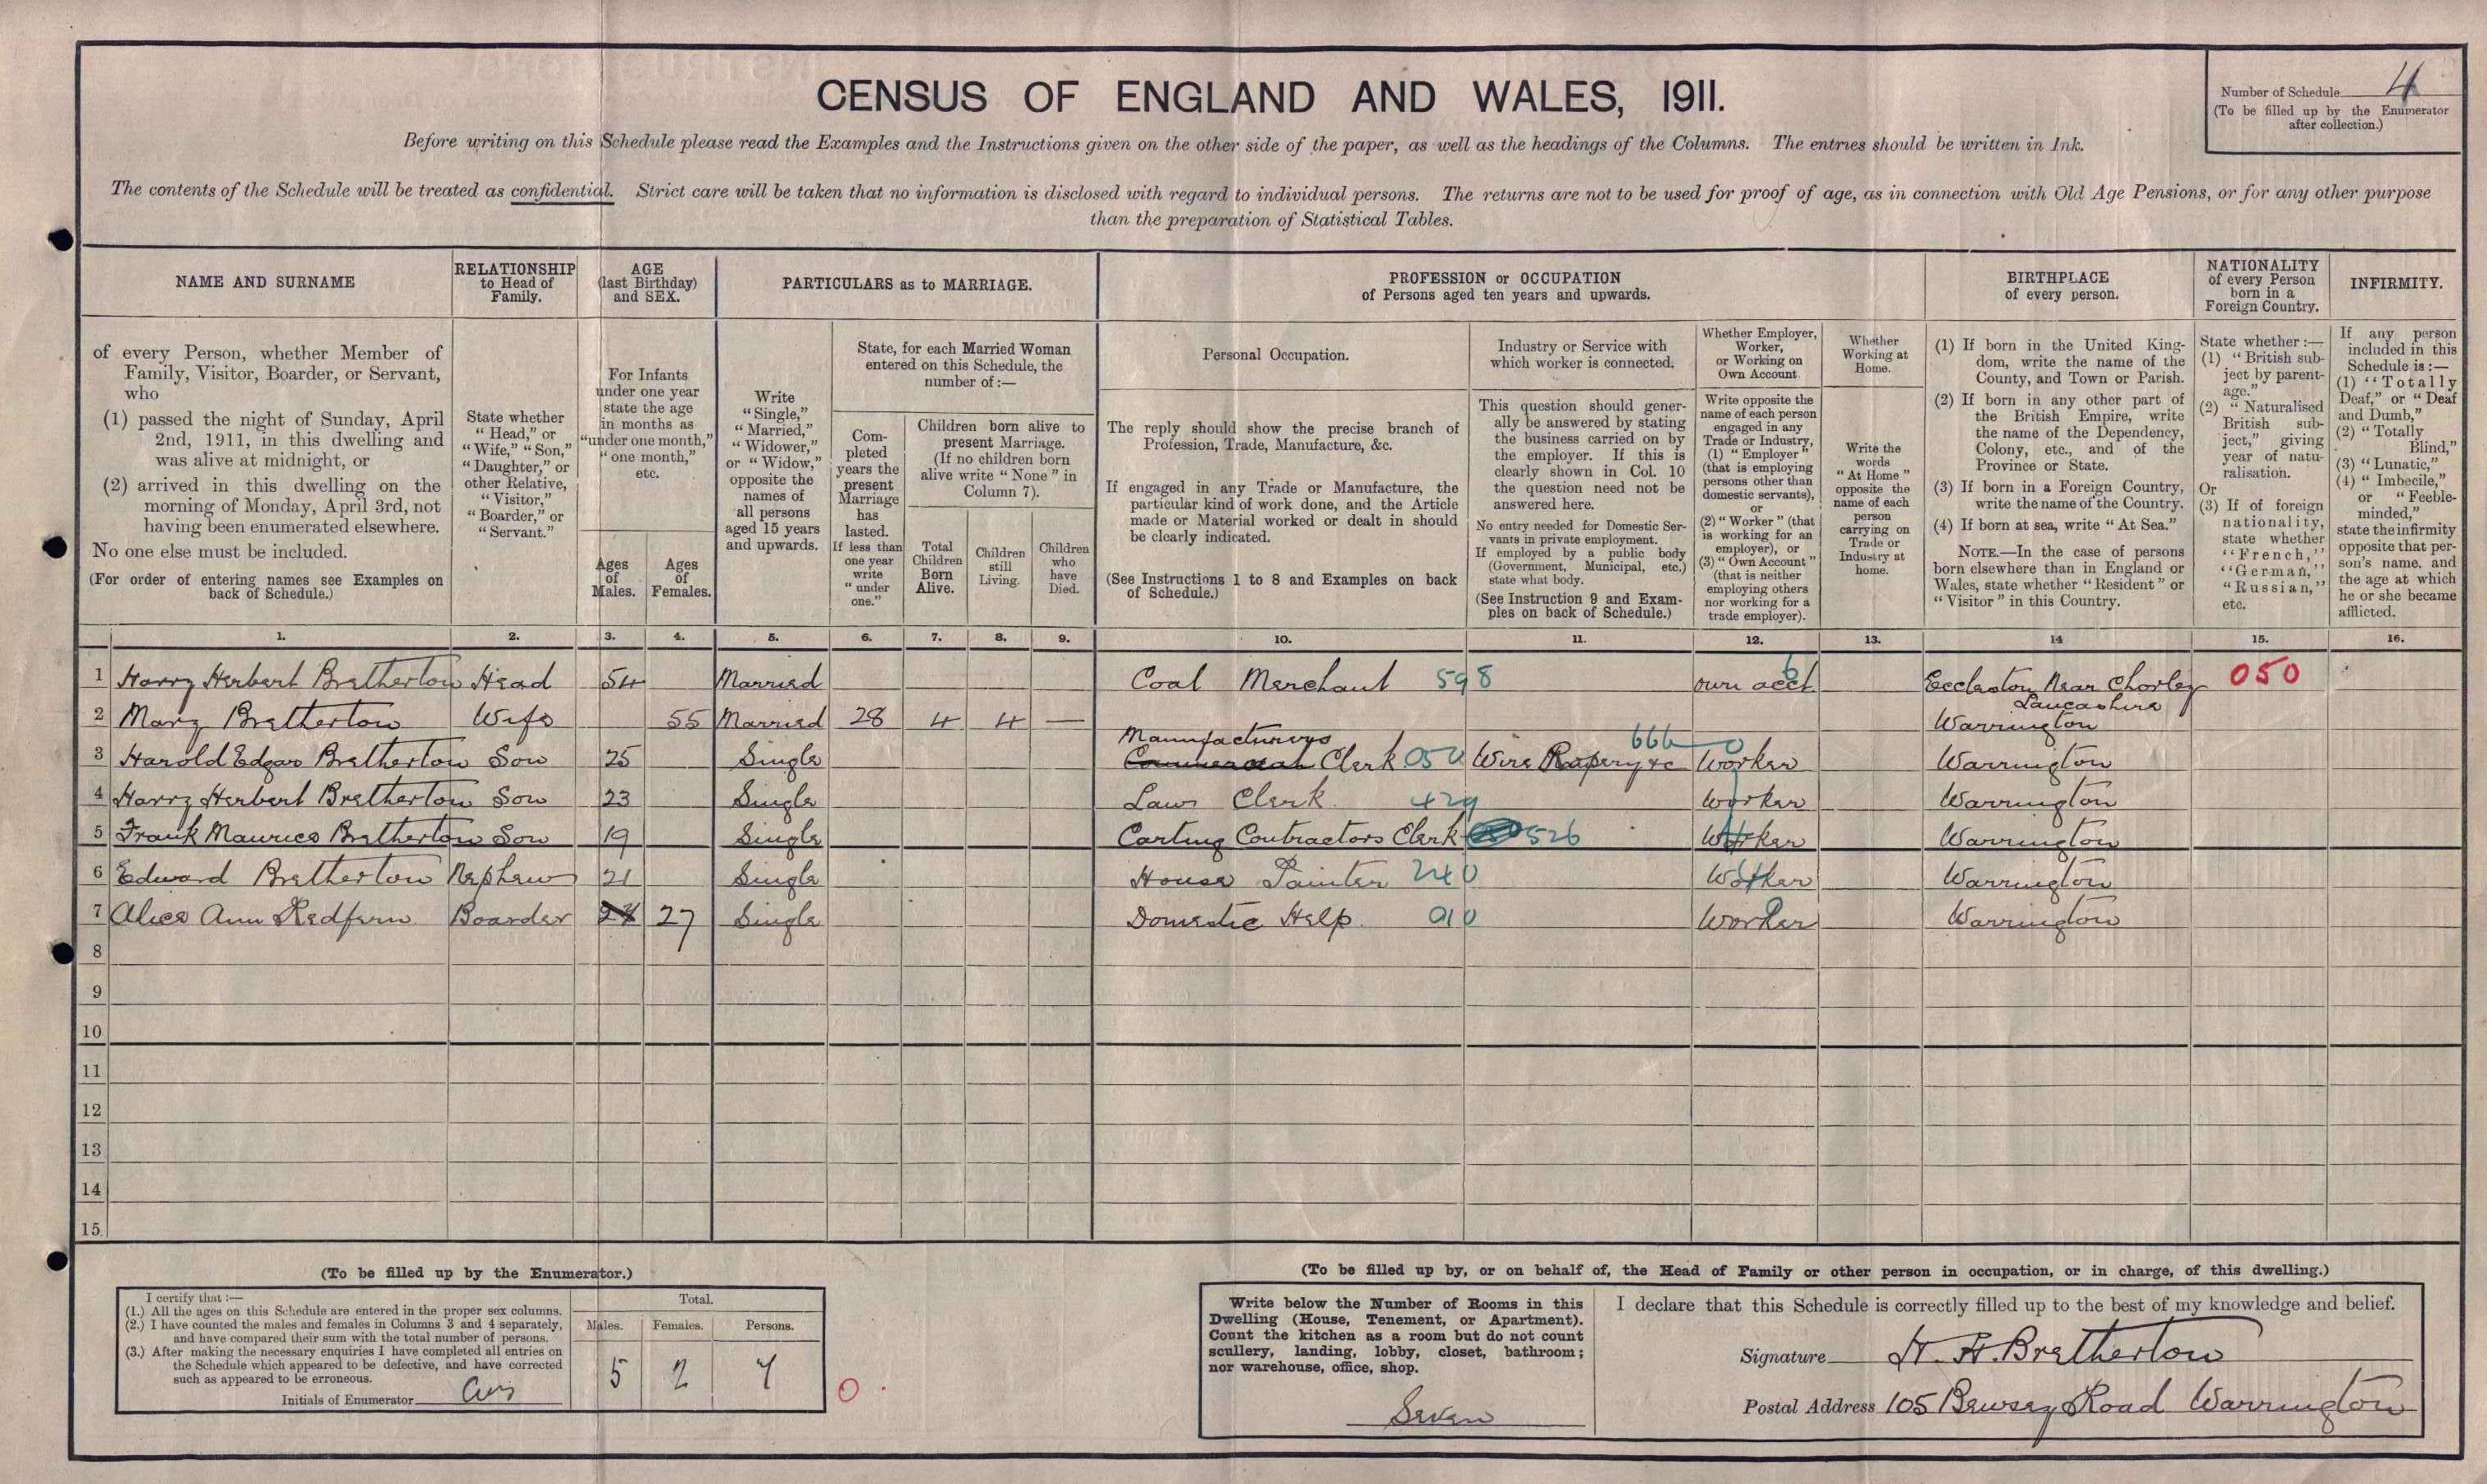 CENSUS OF ENGLAND AND WALES, 1911.
Number of Schedule 4
(To be filled up by the Enumerator
after collection.)
Before writing on this Schedule please read the Examples and the Instructions given on the other side of the paper, as well as the headings of the Columns. The entries should be written in Ink.
The contents of the Schedule will be treated as confidential. Strict care will be taken that no information is disclosed with regard to individual persons. The returns are not to be used for proof of age, as in connection with Old Age Pensions, or for any other purpose
than the preparation of Statistical Tables.
NAME AND SURNAME
of every Person, whether Member of
Family, Visitor, Boarder, or Servant,
who
(1) passed the night of Sunday, April
2nd, 1911, in this dwelling and
was alive at midnight, or
(2) arrived in this dwelling on the
morning of Monday, April 3rd, not
having been enumerated elsewhere.
No one else must be included.
(For order of entering names see Examples on
back of Schedule.)
RELATIONSHIP
to Head of
Family.
State whether
"Head," or
"Wife," "Son,"
"Daughter," or
other Relative,
"Visitor,"
"Boarder," or
"Servant."
AGE
(last Birthday)
and SEX.
For Infants
under one year
state the age
in months as
"under one month,"
"one month,"
etc.
Ages
of
Males.
Ages
of
Females.
PARTICULARS as to MARRIAGE.
Write
"Single,"
"Married,"
"Widower,"
or "Widow,"
opposite the
names of
all persons
aged 15 years
and upwards.
State, for each Married Woman
entered on this Schedule, the
number of :—
Com-
pleted
years the
present
Marriage
has
lasted.
If less than
one year
write
"under
one."
Children born alive to
present Marriage.
(If no children born
alive write "None" in
Column 7).
Total
Children
Born
Alive.
Children
still
Living.
Children
who
have
Died.
PROFESSION or OCCUPATION
of Persons aged ten years and upwards.
Personal Occupation.
The reply should show the precise branch of
Profession, Trade, Manufacture, &c.
If engaged in any Trade or Manufacture, the
particular kind of work done, and the Article
made or Material worked or dealt in should
be clearly indicated.
(See Instructions 1 to 8 and Examples on back
of Schedule.)
Industry or Service with
which worker is connected.
This question should gener-
ally be answered by stating
the business carried on by
the employer. If this is
clearly shown in Col. 10
the question need not be
answered here.
No entry needed for Domestic Ser-
vants in private employment.
If employed by a public body
(Government, Municipal, etc.)
state what body.
(See Instruction 9 and Exam-
ples on back of Schedule.)
Whether Employer,
Worker,
or Working on
Own Account.
Write opposite the
name of each person
engaged in any
Trade or Industry,
(1) "Employer"
(that is employing
persons other than
domestic servants),
or
(2) "Worker" (that
is working for an
employer), or
(3) "Own Account"
(that is neither
employing others
nor working for a
trade employer).
Whether
Working at
Home.
Write the
words
"At Home"
opposite the
name of each
person
carrying on
Trade or
Industry at
home.
BIRTHPLACE
of every person.
(1) If born in the United King-
dom, write the name of the
County, and Town or Parish.
(2) If born in any other part of
the British Empire, write
the name of the Dependency,
Colony, etc., and of the
Province or State.
(3) If born in a Foreign Country,
write the name of the Country.
(4) If born at sea, write "At Sea."
NOTE.—In the case of persons
born elsewhere than in England or
Wales, state whether "Resident" or
"Visitor" in this Country.
NATIONALITY
of every Person
born in a
Foreign Country.
State whether :—
(1) "British sub-
ject by parent-
age."
(2) "Naturalised
British sub-
ject," giving
year of natu-
ralisation.
Or
(3) If of foreign
nationality,
state whether
"French,"
"German,"
"Russian,"
etc.
INFIRMITY.
If any person
included in this
Schedule is :—
(1) "Totally
Deaf," or "Deaf
and Dumb,"
(2) "Totally
Blind,"
(3) "Lunatic,"
(4) "Imbecile,"
or "Feeble-
minded,"
state the infirmity
opposite that per-
son's name, and
the age at which
he or she became
afflicted.
1. 2. 3. 4. 5. 6. 7. 8. 9. 10. 11. 12. 13. 14 15. 16.
1 Harry Herbert Bretherton Head 54 Married Coal Merchant 598 own acct Eccleston Near Chorley Lancashire 050
2 Mary Bretherton Wife 55 Married 28 4 4 — Warrington
3 Harold Edgar Bretherton Son 25 Single Manufacturers Commercial Clerk 050 Wire Ropery &c 666 0 Worker Warrington
4 Harry Herbert Bretherton Son 23 Single Law Clerk 429 Worker Warrington
5 Frank Maurice Bretherton Son 19 Single Carting Contractors Clerk 526 Worker Warrington
6 Edward Bretherton Nephew 21 Single House Painter 240 Worker Warrington
7 Alice Ann Redfern Boarder 27 Single Domestic Help 010 Worker Warrington
8
9
10
11
12
13
14
15
(To be filled up by the Enumerator.)
I certify that :—
(1.) All the ages on this Schedule are entered in the proper sex columns.
(2.) I have counted the males and females in Columns 3 and 4 separately,
and have compared their sum with the total number of persons.
(3.) After making the necessary enquiries I have completed all entries on
the Schedule which appeared to be defective, and have corrected
such as appeared to be erroneous.
Initials of Enumerator
Total.
Males. Females. Persons.
5 2 7
0
(To be filled up by, or on behalf of, the Head of Family or other person in occupation, or in charge, of this dwelling.)
Write below the Number of Rooms in this
Dwelling (House, Tenement, or Apartment).
Count the kitchen as a room but do not count
scullery, landing, lobby, closet, bathroom;
nor warehouse, office, shop.
Seven
I declare that this Schedule is correctly filled up to the best of my knowledge and belief.
Signature H. H. Bretherton
Postal Address 105 Bewsey Road Warrington